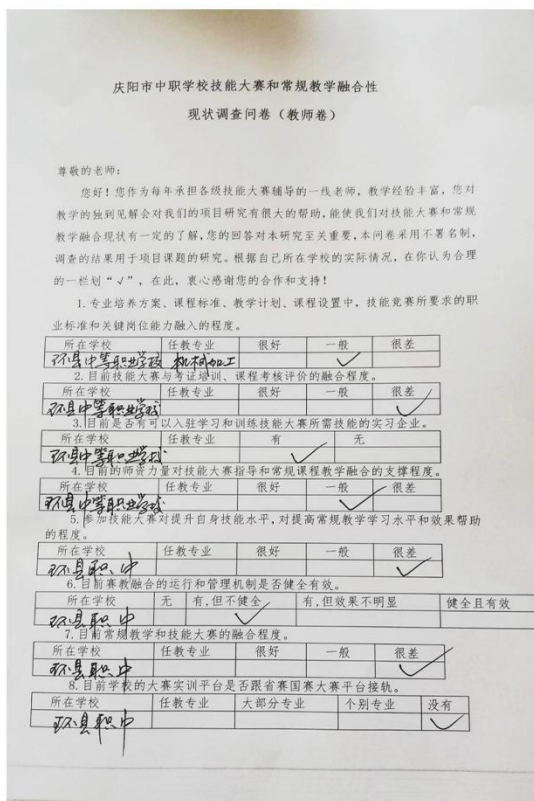 庆阳市中职学校技能大赛和常规教学融合性
现状调查问卷（教师卷）
尊敬的老师：
您好！您作为每年承担各级技能大赛辅导的一线老师，教学经验丰富，您对
教学的独到见解会对我们的项目研究有很大的帮助，能使我们对技能大赛和常规
教学融合现状有一定的了解，您的回答对本研究至关重要，本问卷采用不署名制，
调查的结果用于项目课题的研究。根据自己所在学校的实际情况，在你认为合理
的一栏划“√”，在此，衷心感谢您的合作和支持！
1.专业培养方案、课程标准、教学计划、课程设置中，技能竞赛所要求的职
业标准和关键岗位能力融入的程度。
所在学校 任教专业 很好 一般 很差
环县中等职业学校 机械加工 √
2.目前技能大赛与考证培训、课程考核评价的融合程度。
所在学校 任教专业 很好 一般 很差
环县中等职业学校 √
3.目前是否有可以入驻学习和训练技能大赛所需技能的实习企业。
所在学校 任教专业 有 无
环县中等职业学校 √
4.目前的师资力量对技能大赛指导和常规课程教学融合的支撑程度。
所在学校 任教专业 很好 一般 很差
环县中等职业学校 √
5.参加技能大赛对提升自身技能水平，对提高常规教学学习水平和效果帮助
的程度。
所在学校 任教专业 很好 一般 很差
环县职中 √
6.目前赛教融合的运行和管理机制是否健全有效。
所在学校 无 有,但不健全 有,但效果不明显 健全且有效
环县职中 √
7.目前常规教学和技能大赛的融合程度。
所在学校 任教专业 很好 一般 很差
环县职中 √
8.目前学校的大赛实训平台是否跟省赛国赛大赛平台接轨。
所在学校 任教专业 大部分专业 个别专业 没有
环县职中 √